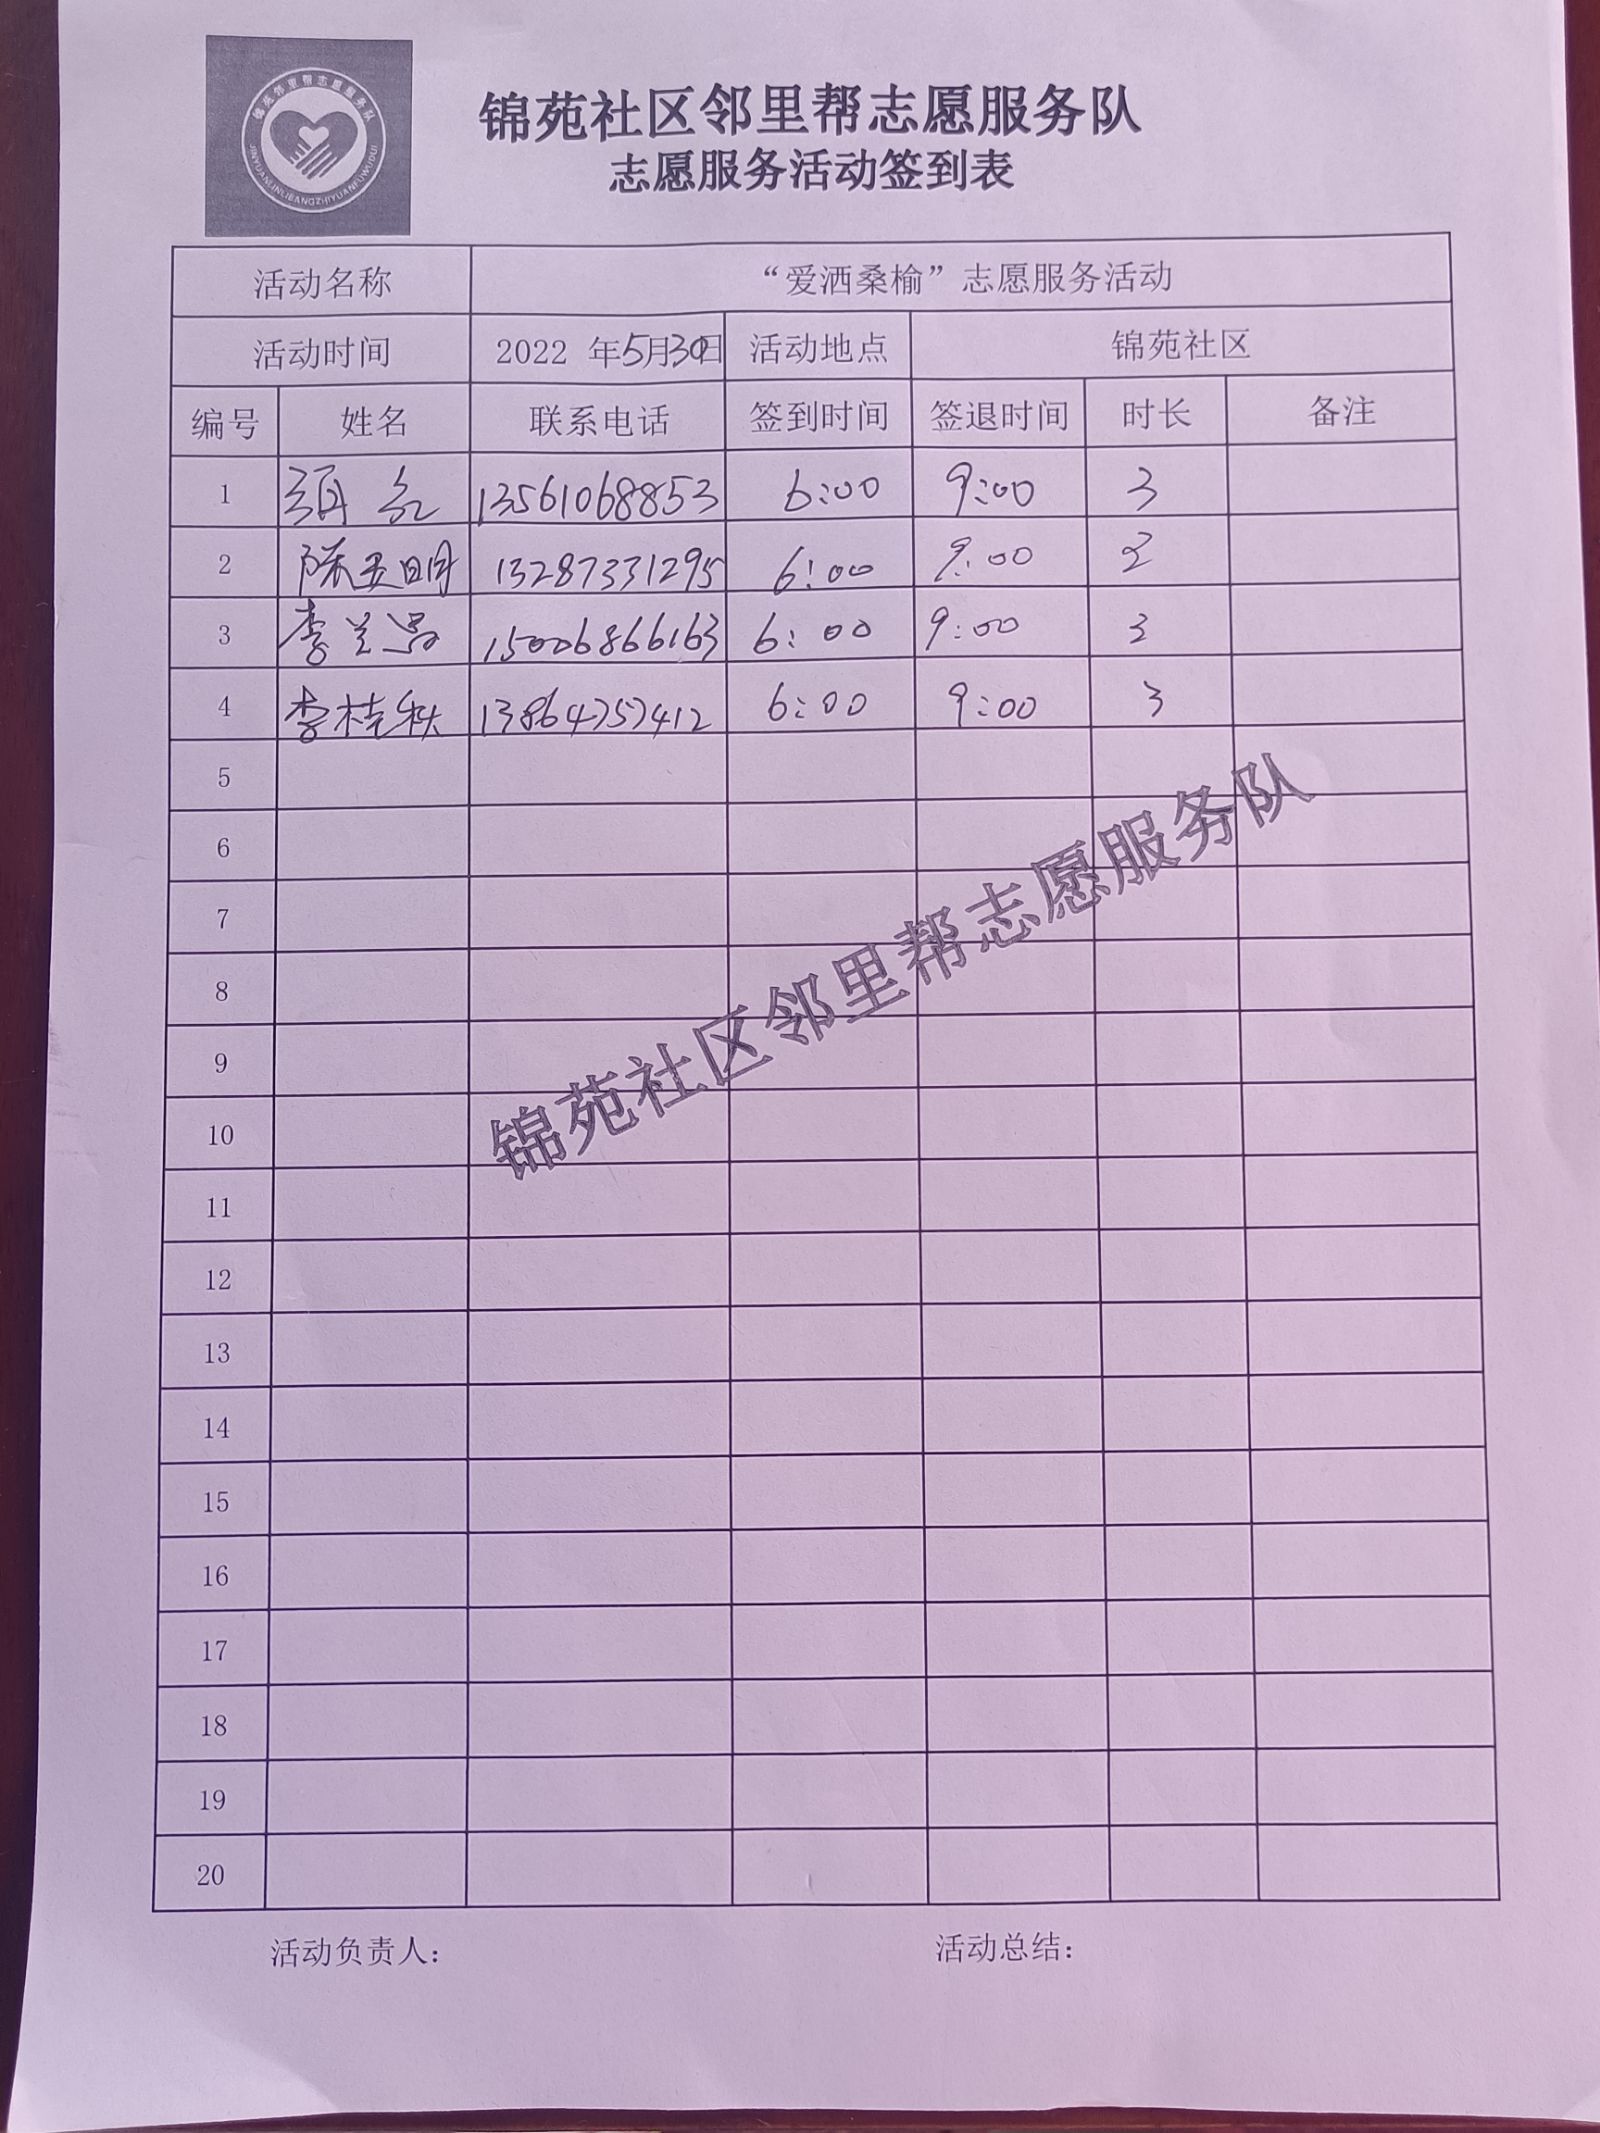 锦苑邻里帮志愿服务队
JINYUANLINLIBANGZHIYUANFUWUDUI
锦苑社区邻里帮志愿服务队
志愿服务活动签到表
活动名称 “爱洒桑榆”志愿服务活动
活动时间 2022 年5月30日 活动地点 锦苑社区
编号 姓名 联系电话 签到时间 签退时间 时长 备注
1 13561068853 6:00 9:00 3
2 陈 明 13287331295 6:00 9:00
3 李兰 15006866163 6:00 9:00 3
4 李桂秋 13864757412 6:00 9:00 3
5
6
7
8
9
10
11
12
13
14
15
16
17
18
19
20
锦苑社区邻里帮志愿服务队
活动负责人: 活动总结: